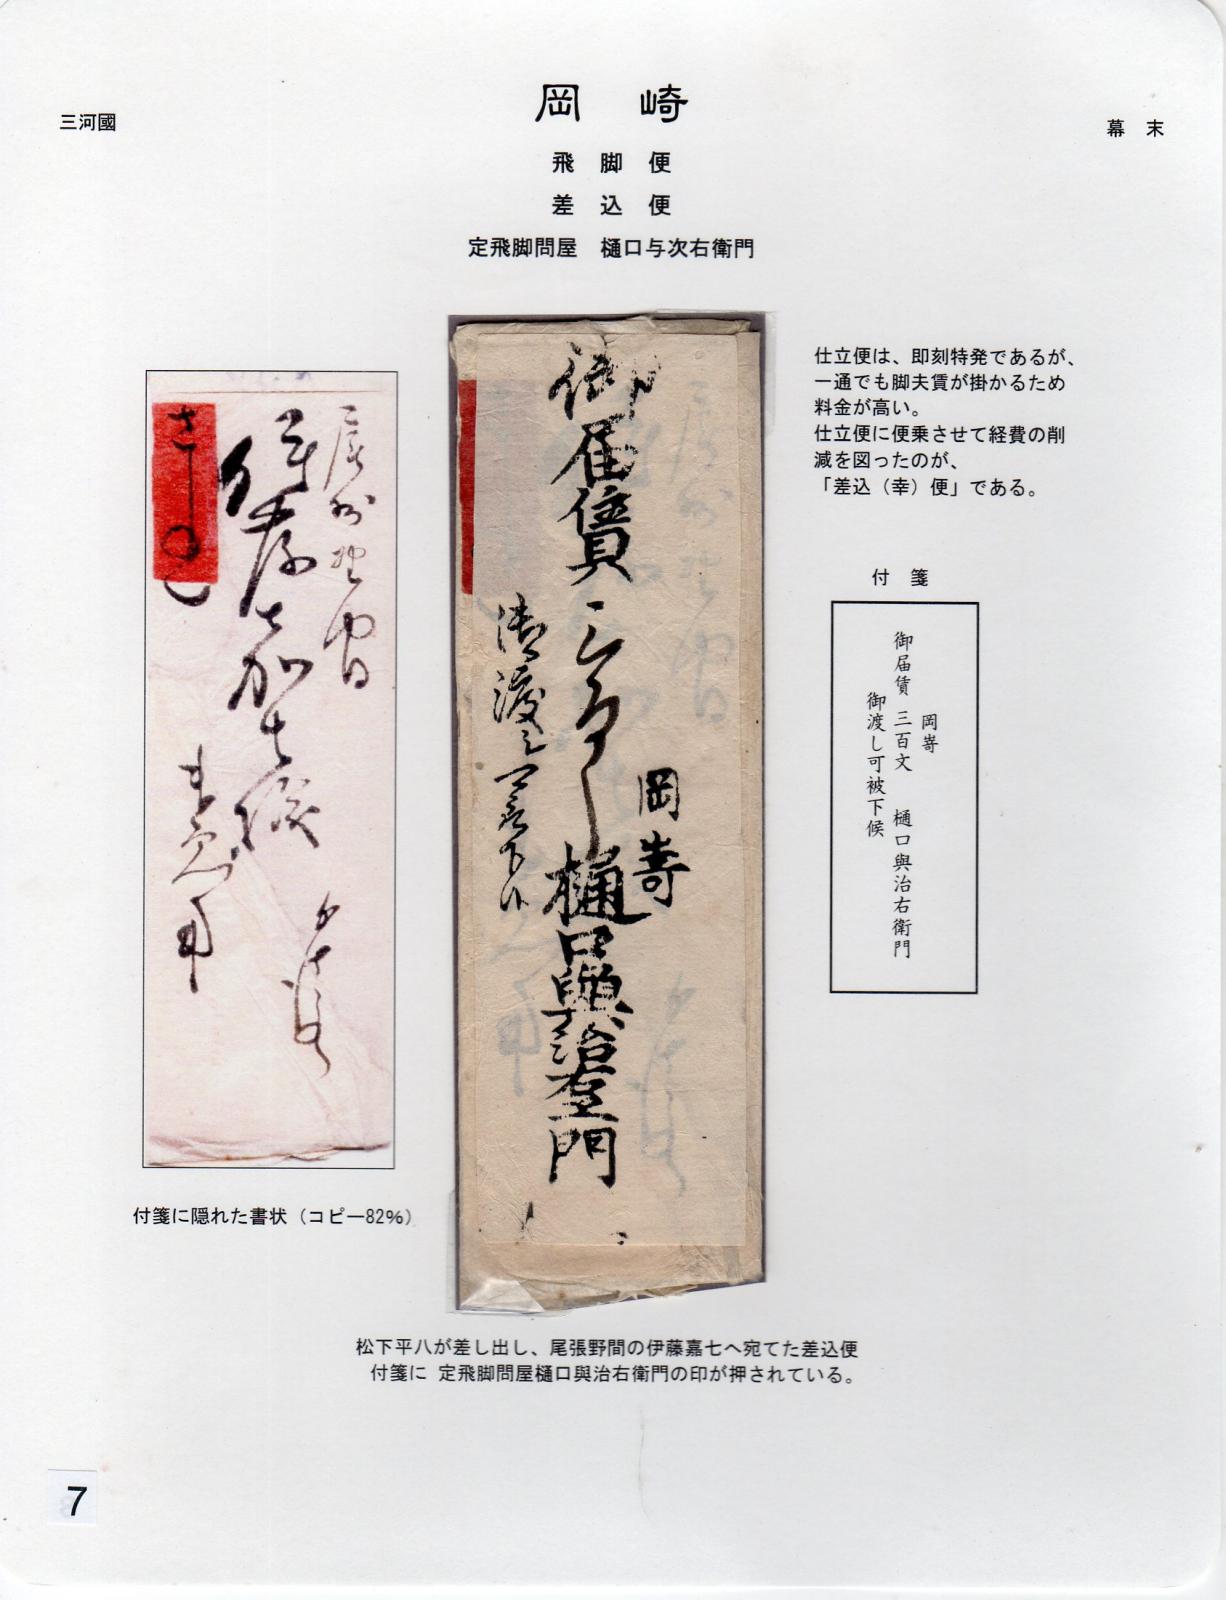 三河國
岡 崎
幕 末
飛 脚 便
差 込 便
定飛脚問屋 樋口与次右衛門
仕立便は、即刻特発であるが、
一通でも脚夫賃が掛かるため
料金が高い。
仕立便に便乗させて経費の削
減を図ったのが、
「差込（幸）便」である。
付 箋
岡嵜
御届賃 三百文 樋口與治右衛門
御渡し可被下候
岡嵜
御届賃 三百文 樋口與治右衛門
御渡し可被下候
尾州野間
伊藤嘉七様
さしこし
付箋に隠れた書状（コピー82%）
松下平八が差し出し、尾張野間の伊藤嘉七へ宛てた差込便
付箋に 定飛脚問屋樋口與治右衛門の印が押されている。
7